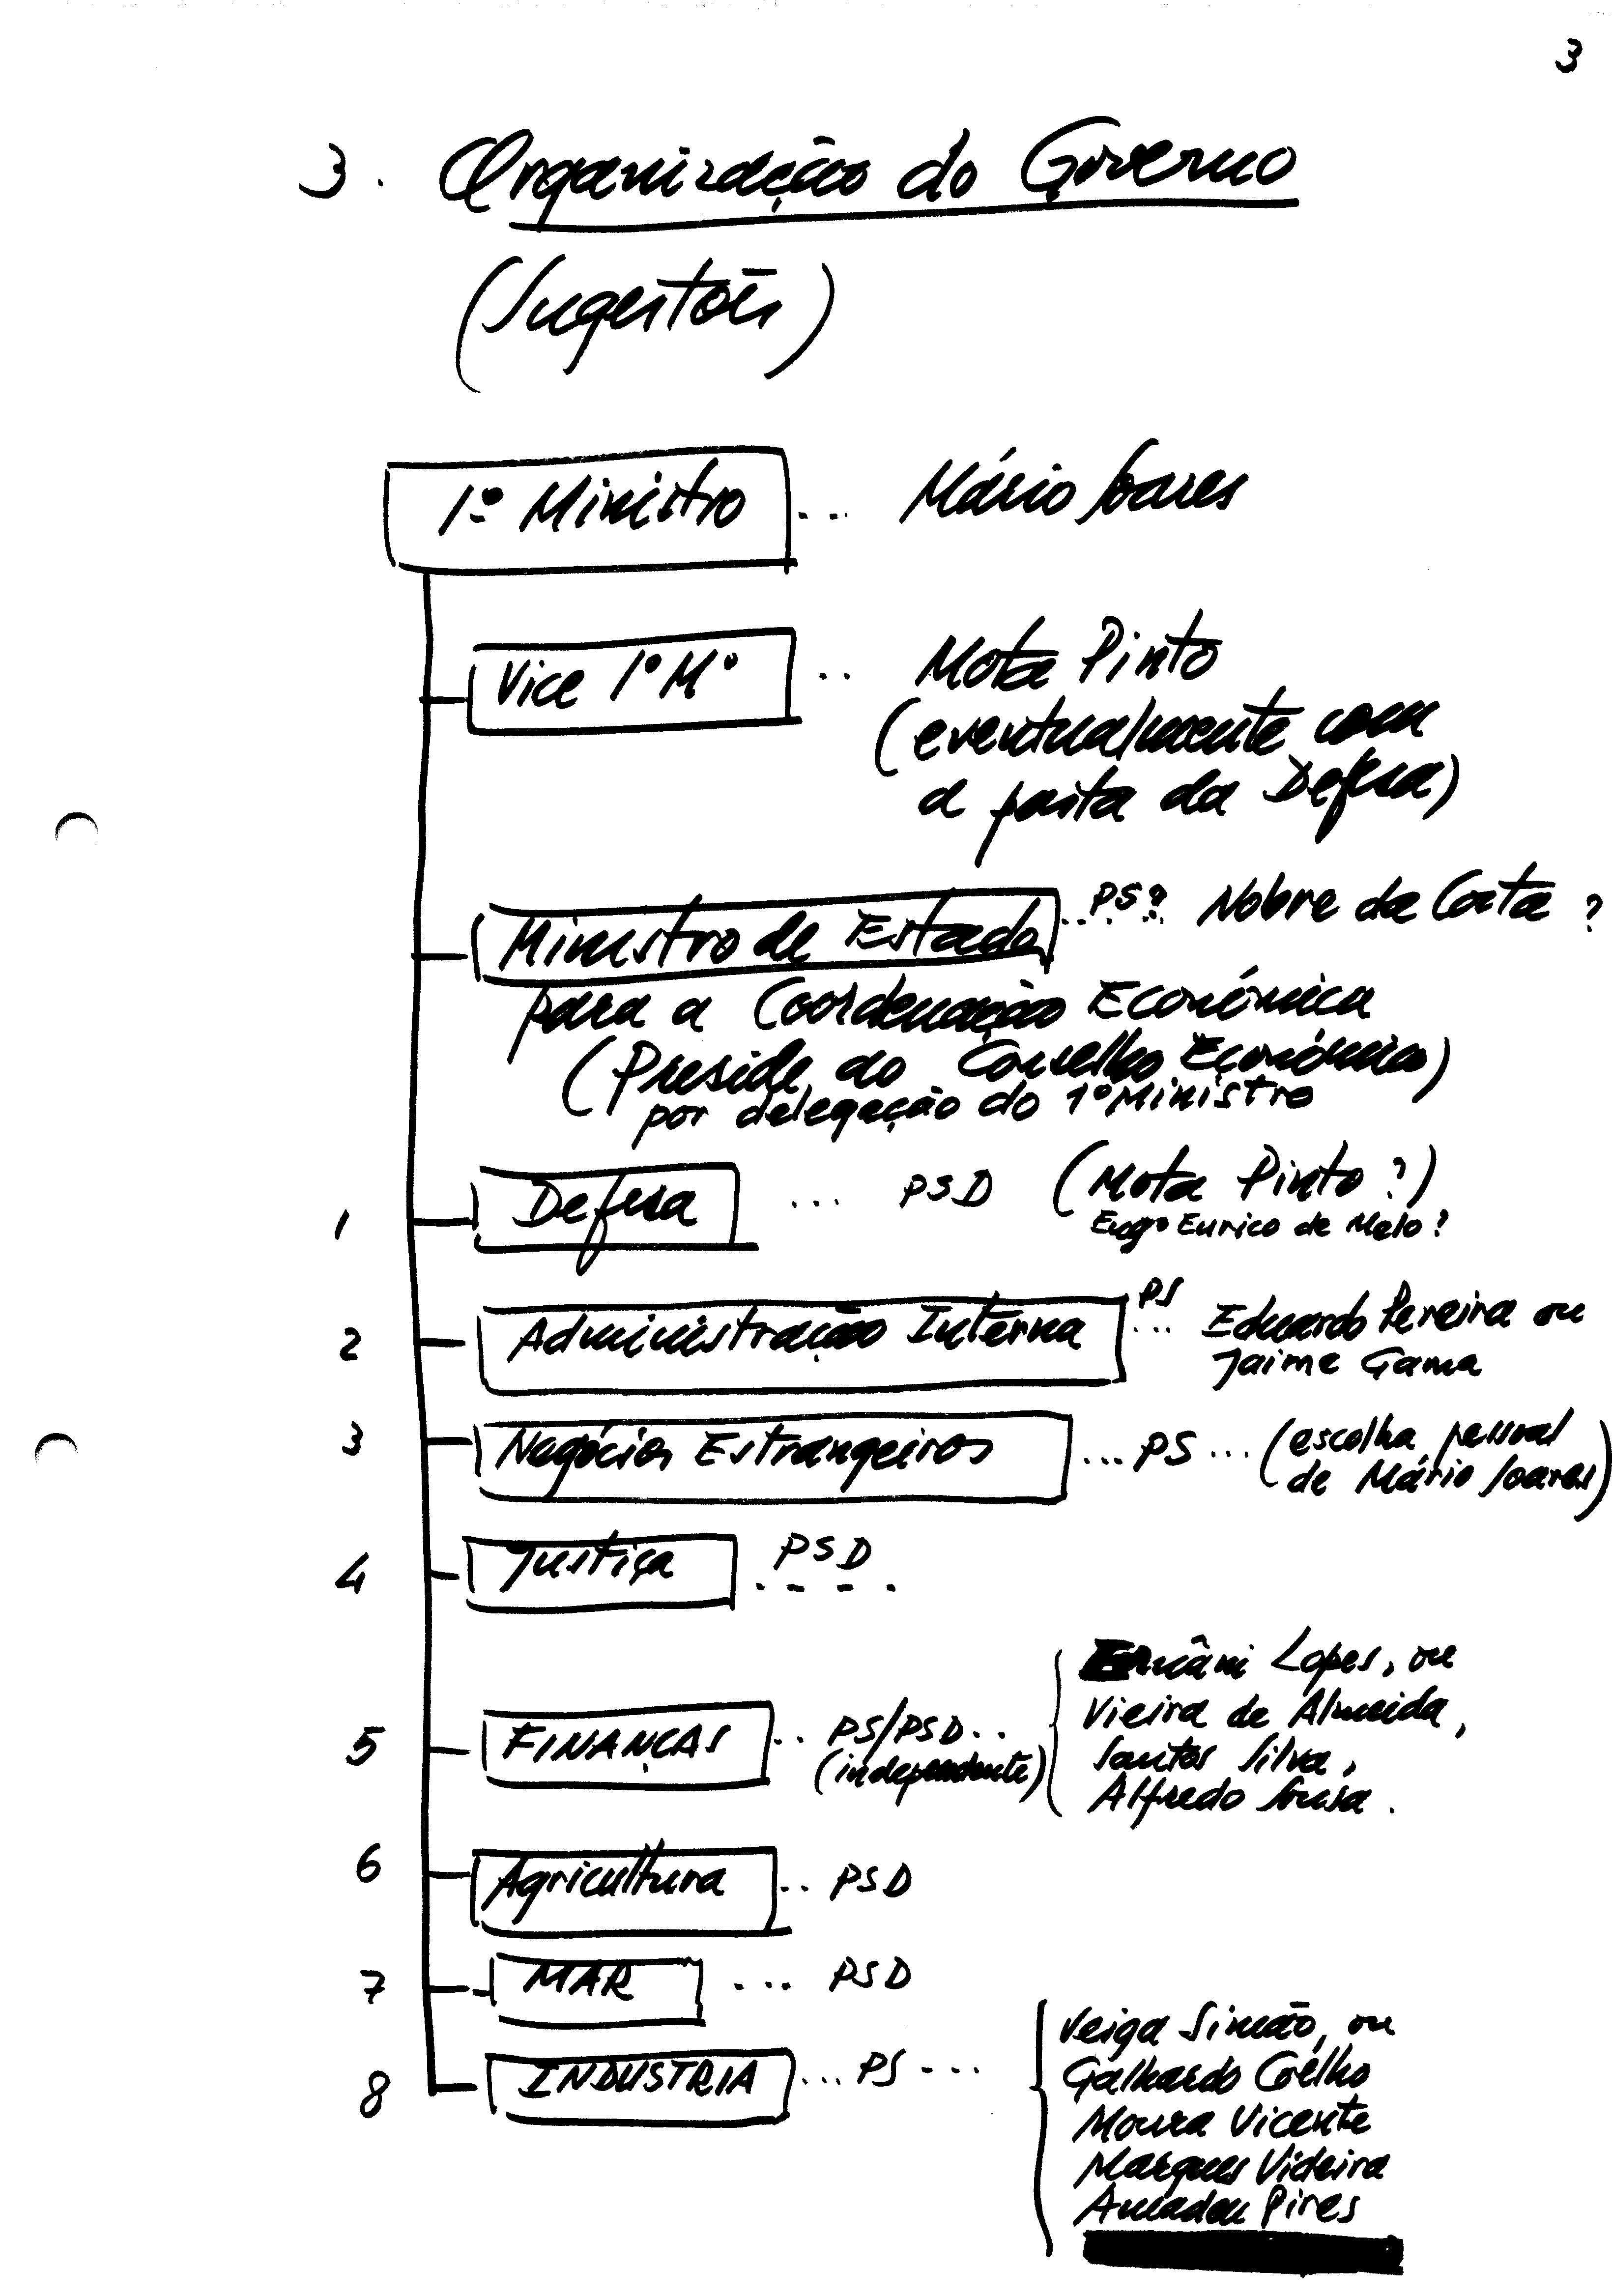 3
3. Organização do Governo
(Sugestões)
1º Ministro ... Mário Soares
Vice 1º Mº .. Mota Pinto
(eventualmente com
a pasta da Defesa)
Ministro de Estado ... PS? Nobre da Costa ?
para a Coordenação Económica
(Preside ao Conselho Económico)
por delegação do 1º Ministro
1 Defesa ... PSD (Mota Pinto ?)
Engº Eurico de Melo ?
2 Administração Interna PS ... Eduardo Pereira ou
Jaime Gama
3 Negócios Estrangeiros ... PS ... (escolha pessoal
de Mário Soares)
4 Justiça PSD
5 FINANÇAS .. PS/PSD .. (independente)
Ernâni Lopes, ou
Vieira de Almeida,
Santos Silva,
Alfredo Sousa.
6 Agricultura .. PSD
7 MAR ... PSD
8 INDUSTRIA ... PS ...
Veiga Simão, ou
Galhardo Coêlho
Moura Vicente
Marques Videira
Amadeu Pires